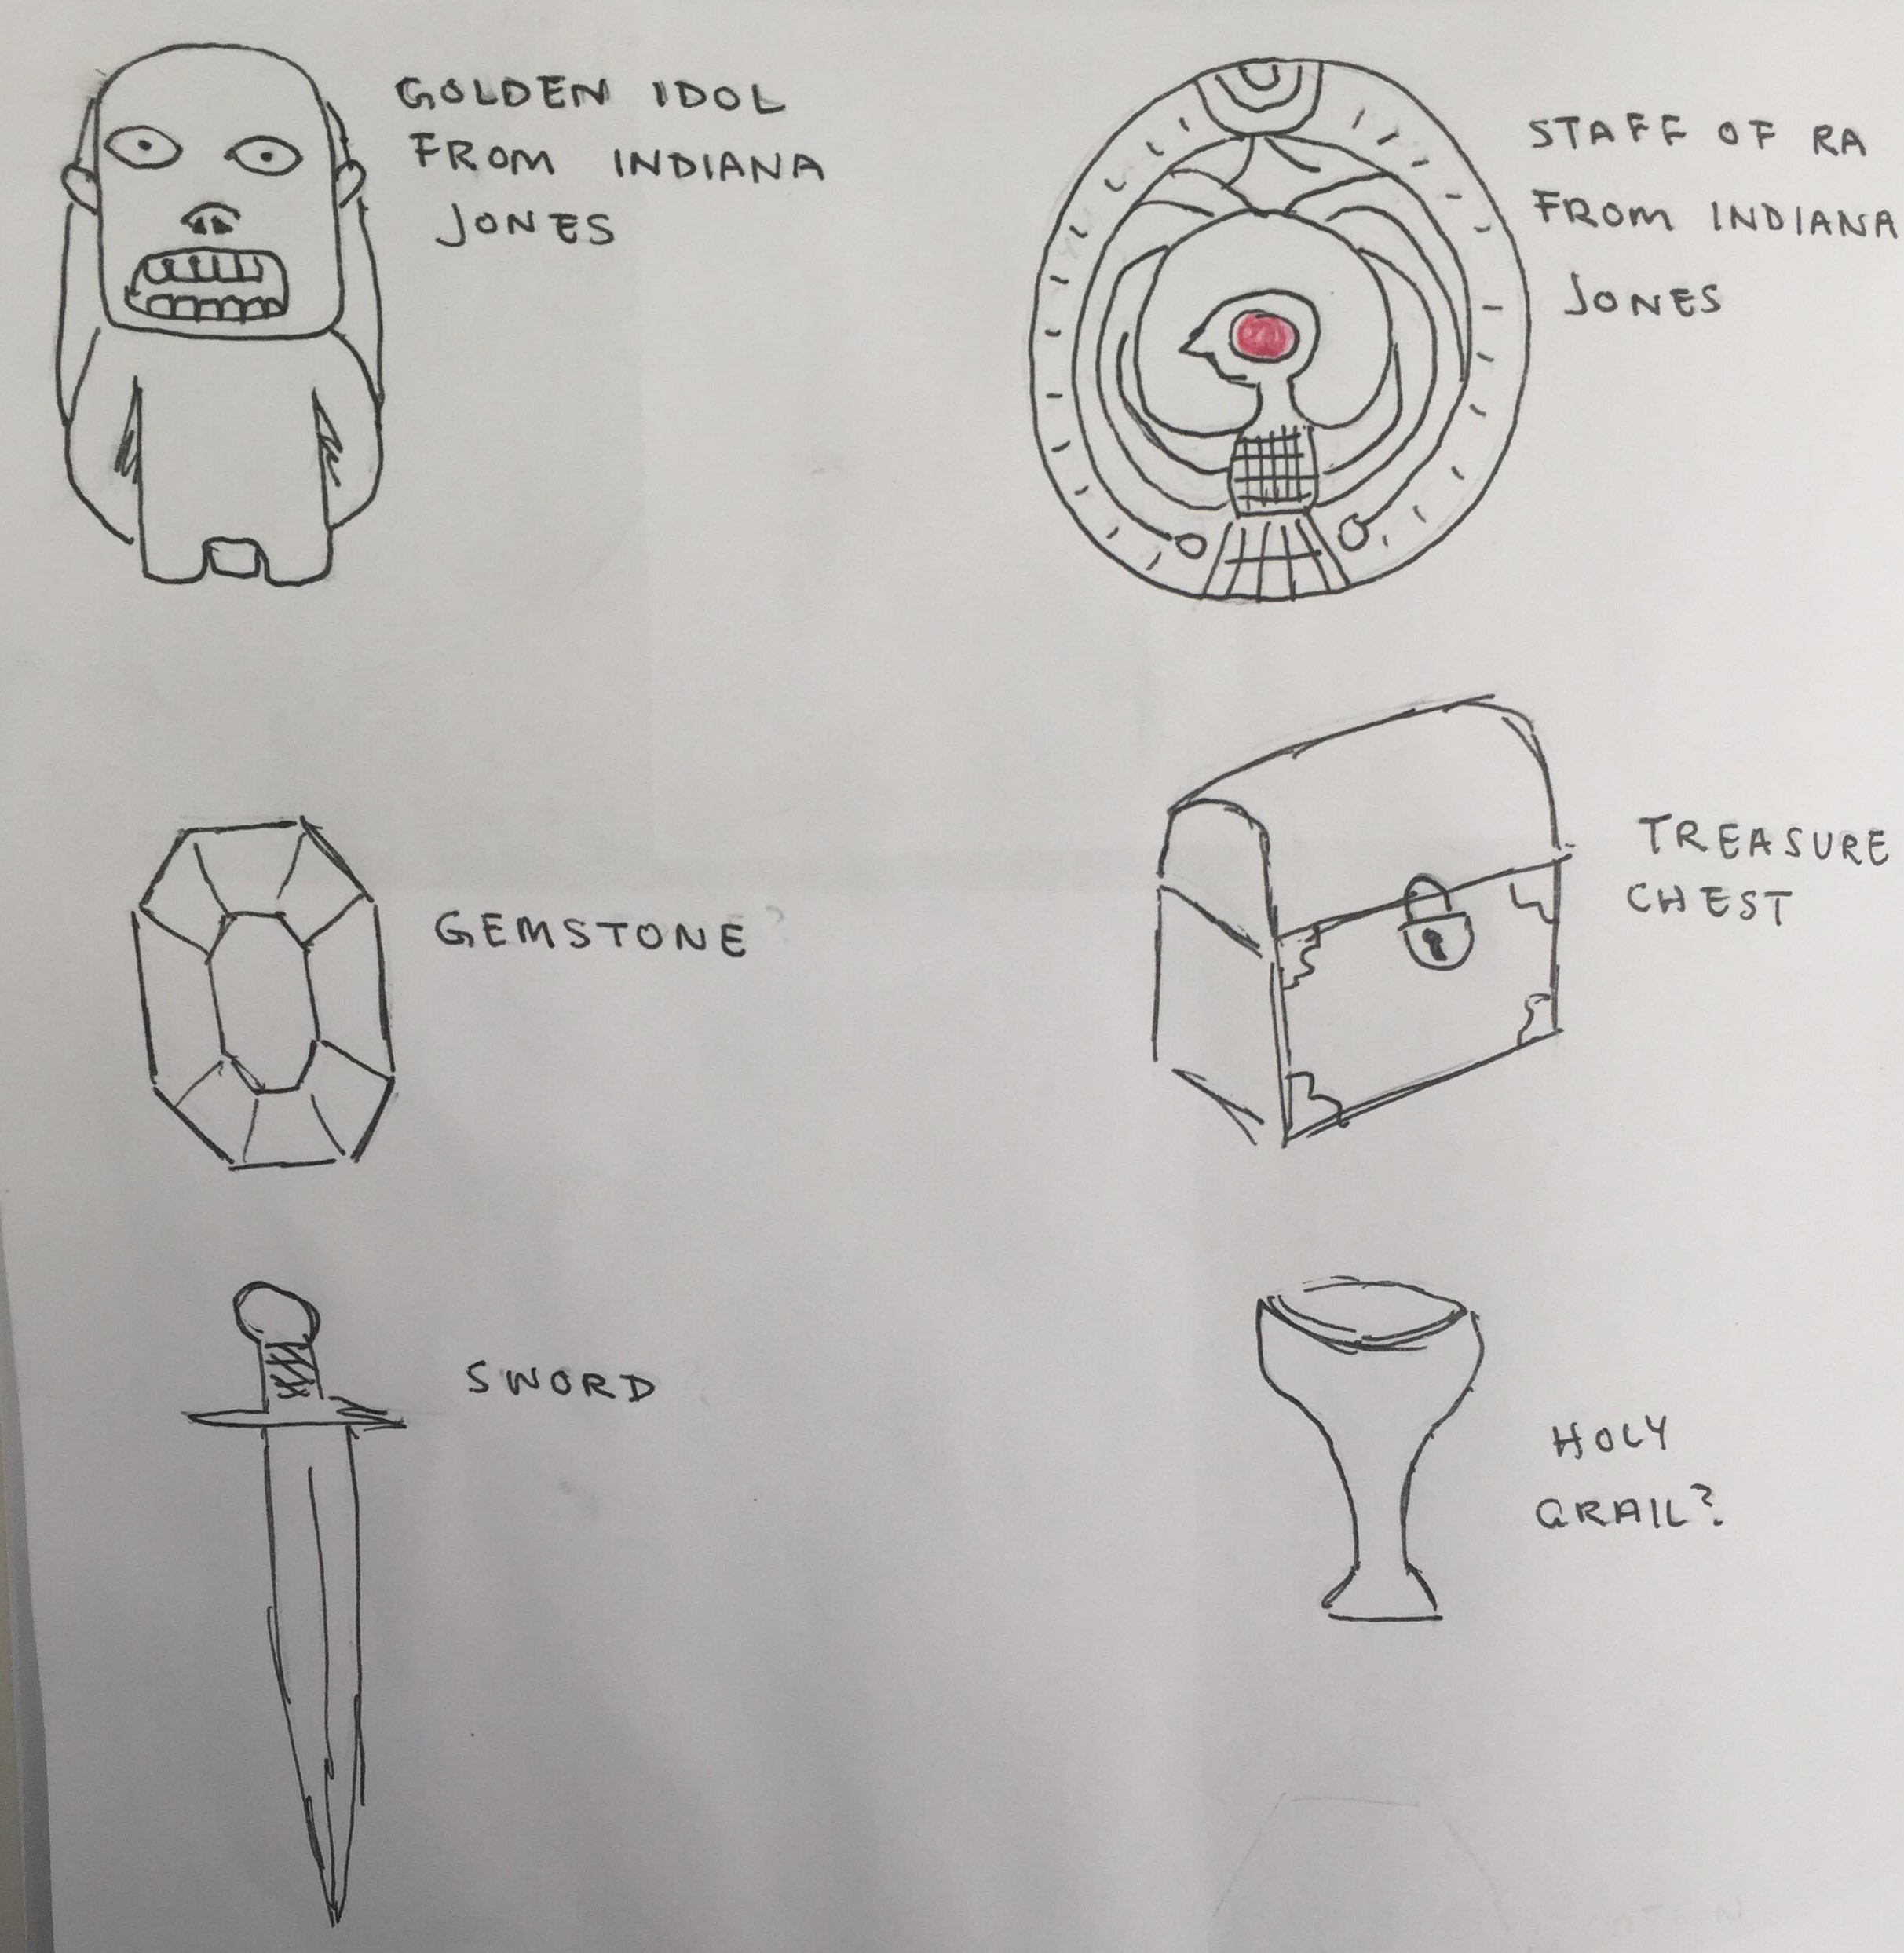 GOLDEN IDOL
FROM INDIANA
JONES
STAFF OF RA
FROM INDIANA
JONES
GEMSTONE
TREASURE
CHEST
SWORD
HOLY
GRAIL?